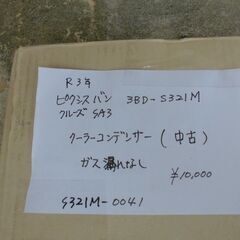 R3年
ピクシスバン 3BD-S321M
クルーズ SA3
クーラーコンデンサー (中古)
ガス漏れなし
¥10,000
S321M-0041